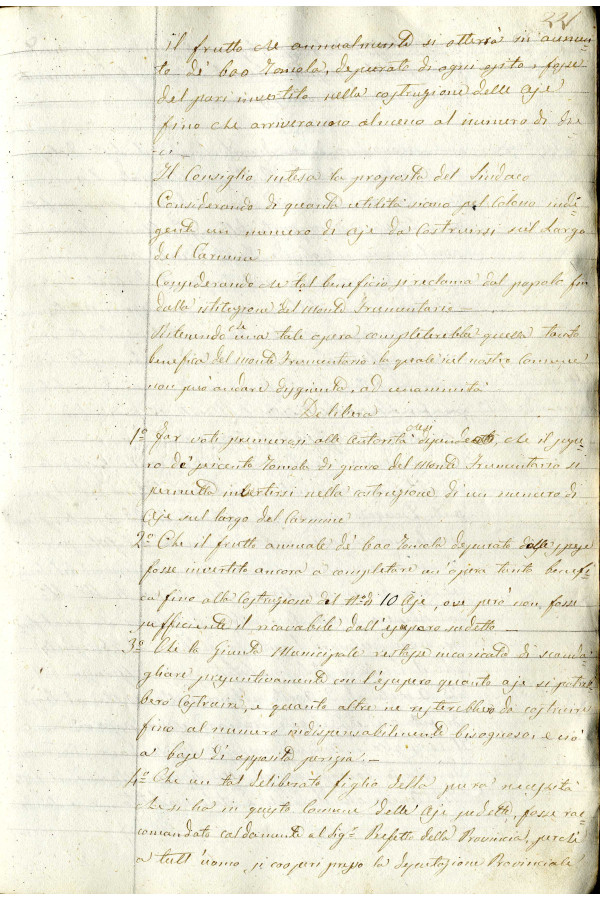 22
il frutto che annualmente si otterrà in aumen-
to de' 600 Tomola, depurato di ogni esito, fosse
del pari invertito nella costruzione delle Aje
fino che arriveranno almeno al numero di die
ci —
Il Consiglio intesa la proposta del Sindaco
Considerando di quanta utilità siano pel Colono indi-
gente un numero di Aje da costruirsi sul Largo
del Carmine
Considerando che tal beneficio si reclama dal popolo fin
dalla istituzione del Monte Frumentario —
Ritenendo che una tale opera completerebbe questa tanto
benefica del Monte Frumentario, la quale nel nostro Comune
non può andare disgiunta, ad unanimità
Delibera
1º Far voti premurosi alle Autorità, che il supe-
ro de' seicento Tomola di grano del Monte Frumentario si
permetta invertirsi nella costruzione di un numero di
Aje sul largo del Carmine
2º Che il frutto annuale de' 600 Tomola depurato dalle spese
fosse invertito ancora a completare un'opera tanto benefi
ca fino alla costruzione del Nº di 10 Aje, ove però non fosse
sufficiente il ricavabile dall'esupero sudetto —
3º Che la Giunta Municipale restasse incaricata di scanda-
gliare preventivamente con l'esupero quante aje si potreb
bero costruire, e quante altre ne resterebbero da costruire
fino al numero indispensabilmente bisognoso, e ciò
a base di apposita perizia —
4º Che un tal deliberato figlio della pura necessità
che si ha in questo Comune delle Aje sudette, fosse rac-
comandato caldamente al Sigr Prefetto della Provincia, perchè
a tutt'uomo si cooperi presso la Deputazione Provinciale